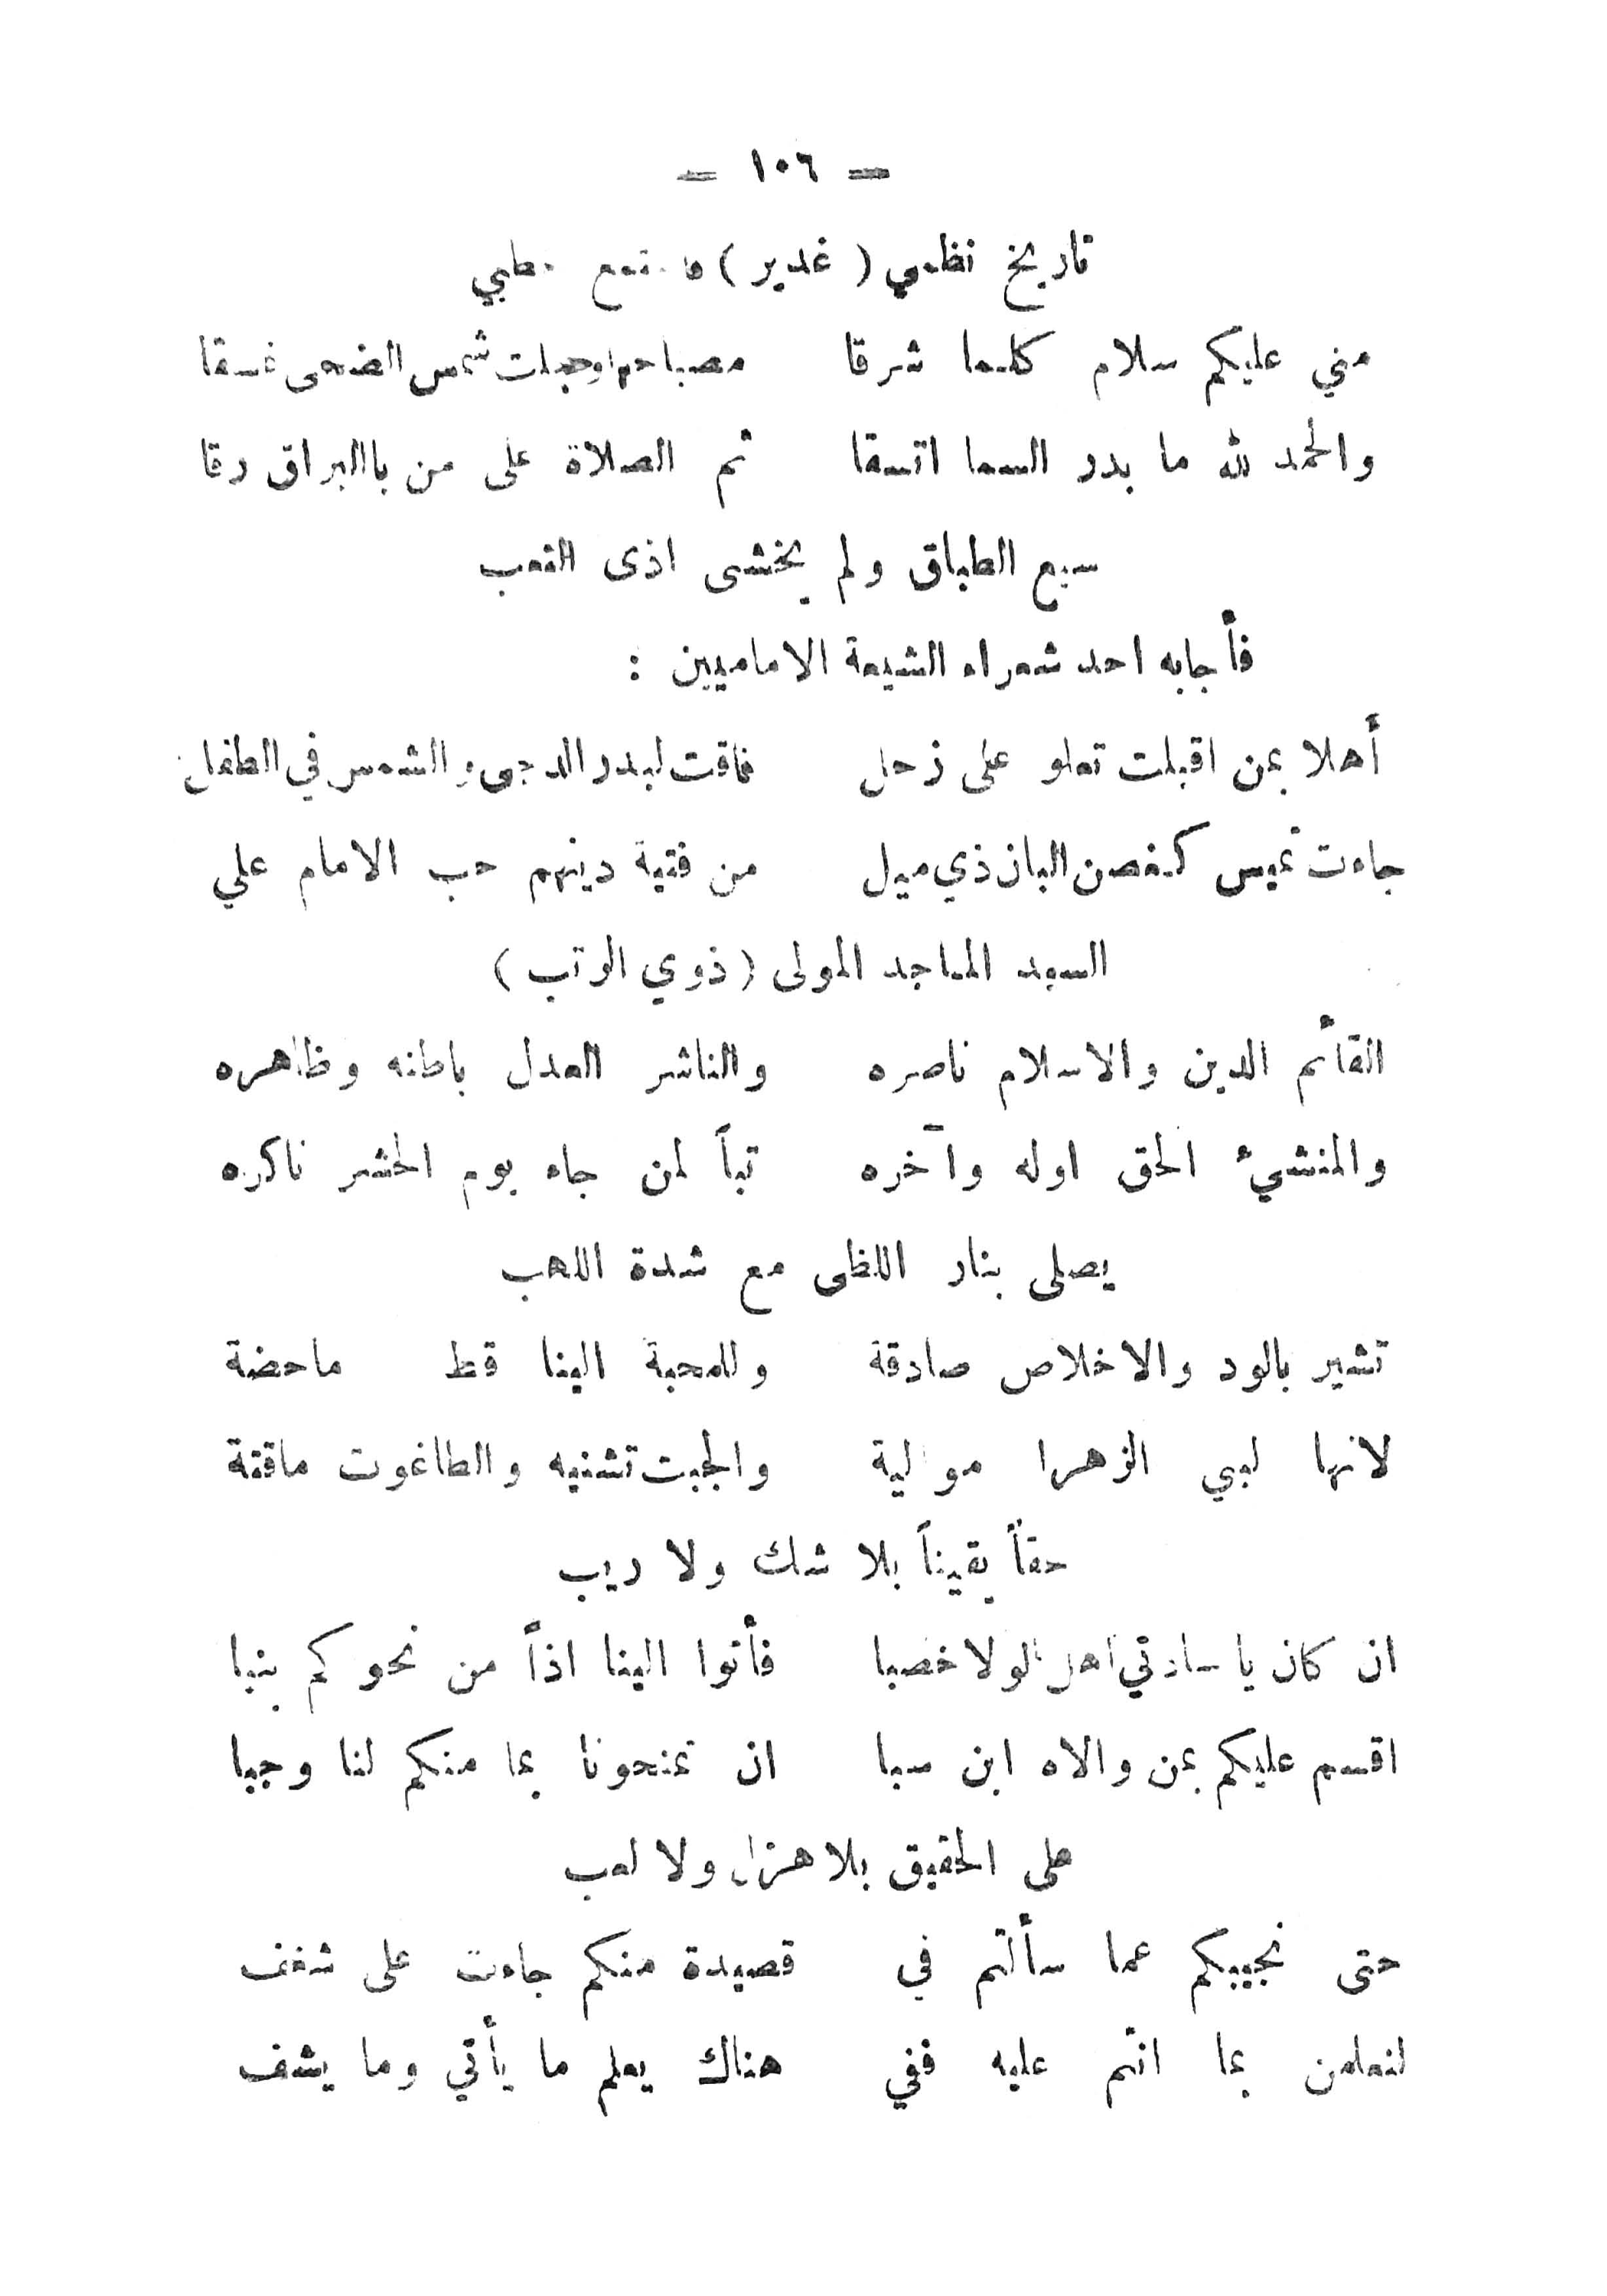 — ١٠٦ —
تاريخ نظمي (غدير)
مني عليكم سلام كلما شرقا مصباحها وجلت شمس الضحى غسقا
والحمد لله ما بدر السما اتسقا ثم الصلاة على من باالبراق رقا
سبع الطباق ولم يخشى اذى التعب
فأجابه احد شعراء الشيعة الاماميين :
أهلا بمن اقبلت تعلو على زحل فاقت لبدر الدجى والشمس في الطفل
جاءت تميس كغصن البان ذي ميل من فتية دينهم حب الامام علي
السيد الماجد المولى (ذوي الرتب)
القائم الدين والاسلام ناصره والناشر العدل باطنه وظاهره
والمنشيء الحق اوله وآخره تباً لمن جاء يوم الحشر ناكره
يصلى بنار اللظى مع شدة اللهب
تشير بالود والاخلاص صادقة وللمحبة الينا قط ماحضة
لانها لبني الزهرا موالية والجبت تشنيه والطاغوت ماقتة
حقاً يقيناً بلا شك ولا ريب
ان كان يا سادتي اهل الولا خصبا فأتوا الينا اذاً من نحوكم بنبا
اقسم عليكم بمن والاه ابن سبا ان تمنحونا بما منكم لنا وجبا
على الحقيق بلا هزل ولا لعب
حتى نجيبكم عما سألتم في قصيدة منكم جاءت على شغف
لنعلمن بما انتم عليه ففي هناك يعلم ما يأتي وما يشف